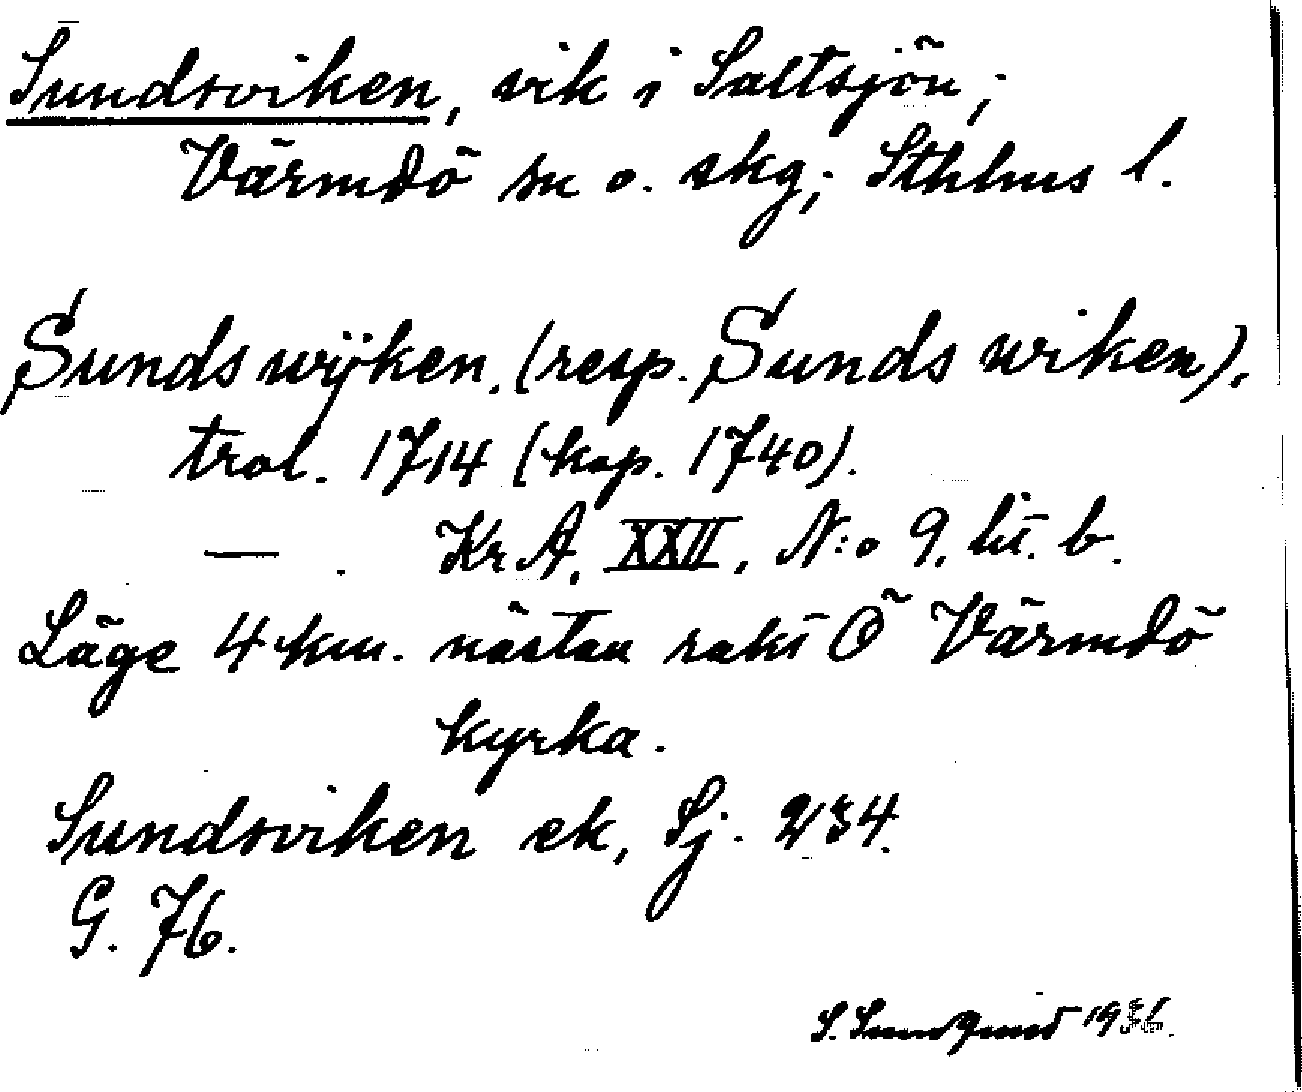 Sundsviken, vik i Saltsjön;
Värmdö sn o. skg; Sthlms l.
Sunds wijken. (resp. Sunds wiken).
trol. 1714 (kop. 1740).
— . KrA, XXII, N:o 9. lit. b.
Läge 4 km. nästan rakt Ö Värmdö
kyrka.
Sundsviken ek, Sj. 234.
G. 76.
S. Sundquist 1936.